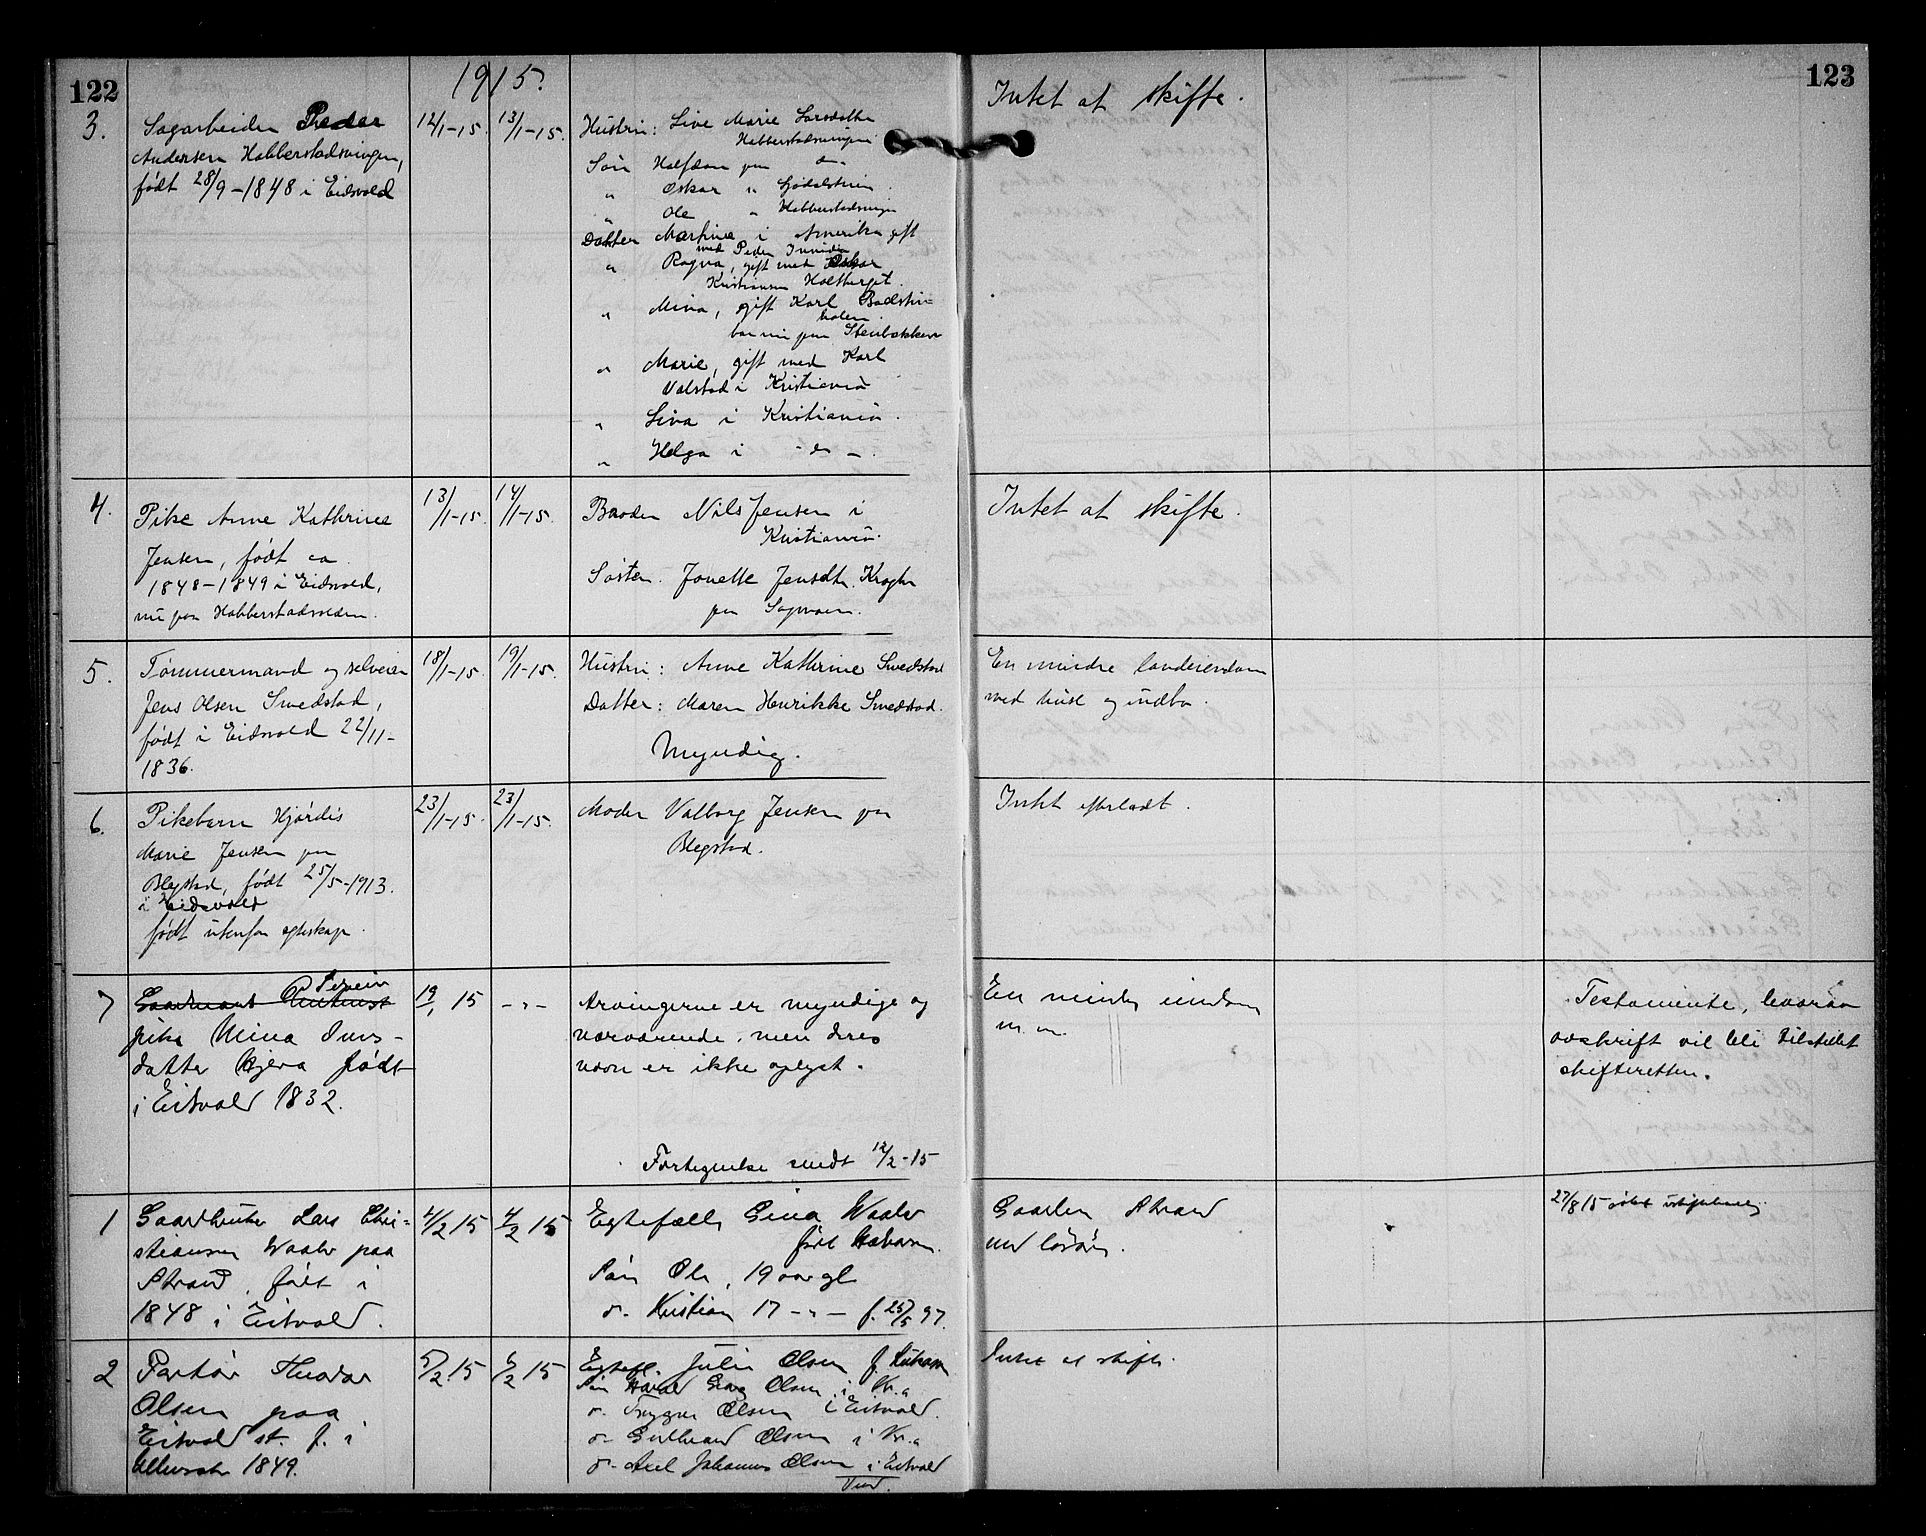 122
1915.
123
3.
Sagarbeider Peder
Andersen Habberstadsvingen,
født 28/9-1848 i Eidsvold
12/1-15.
13/1-15.
Hustru: Live Marie Larsdatter
Habberstadsvingen
Søn Halfdan paa do-
" Oskar "
" Ole " Habberstadsvingen
Datter Martine i Amerika gift
med Peder
" Ragna, gift med Oskar
Kristiansen Holtberget.
" Mina, gift Karl Badstu-
bor nu paa Stenbakken
" Marie, gift med Karl
Valstad i Kristiania
" Lina i Kristiania.
" Helga i - do -.
Intet at skifte.
4.
Pike Anne Kathrine
Jensen, født ca
1848-1849 i Eidsvold,
nu paa Habberstadmoen.
13/1-15.
14/1-15.
Broder Nils Jensen i
Kristiania.
Søster. Jonette Jensdtr. Krogh
paa Sagmoen.
Intet at skifte.
5.
Tømmermand og selveier
Jens Olsen Smedstad,
født i Eidsvold 22/11-
1836.
18/1-15.
19/1-15.
Hustru: Anne Kathrine Smedstad
Datter: Maren Henrikke Smedstad.
Myndig.
En mindre landeiendom
med huse og indbo.
6.
Pikebarn Hjørdis
Marie Jensen paa
Blegstad, født 25/5-1913.
i Eidsvold
født utenfor egteskap.
23/1-15.
23/1-15.
Moder Valborg Jensen paa
Blegstad.
Intet efterladt.
7
Gaardmand
pike Mina Jens-
datter Bjerva født
i Eidsvold 1832.
19/1 15
- " -
Arvingerne er myndige og
nærværende, men deres
navn er ikke oplyst.
Fortegnelse sendt 12/2-15
En mindre eiendom
m. m.
Testamente, hvorav
avskrift vil bli tilstillet
skifteretten.
1
Gaardbruker Lars Chri-
stiansen Waaler paa
Strand, født i
1848 i Eidsvold.
4/2 15
4/2 15
Egtefælle Gina Waaler
født
Søn Ole, 19 aar gl
do- Kristian 17 - " - f. 25/5 97.
Gaarden Strand
med løsøre.
27/8 15
2
Portør Theodor
Olsen paa
Eidsvold st. f. i
Ullensaker 1849.
5/2 15
6/2 15
Egtef. Julie Olsen f.
Søn Harald Georg Olsen i Kr.a
do- Trygve Olsen i Eidsvold.
do- Gudbrand Olsen i Kr.a
do- Axel Johannes Olsen i Eidsvold
Vend.
Intet at skifte.